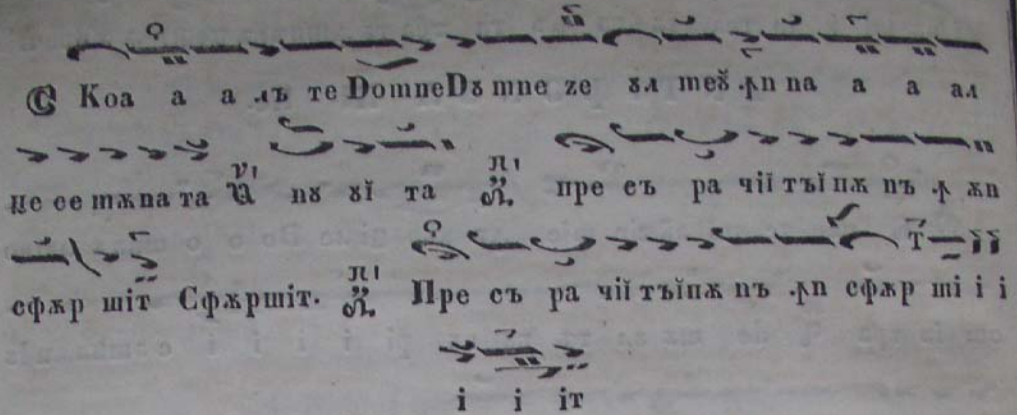 С Коа а а лъ те DomneDȣ mne ze ȣл meȣ̆ .ꙟn na а а ал
це се mѫna та nȣ ȣĭ та пре съ ра чїї тъĭ пѫ nъ ꙟ ѫn
сфѫр шіт Сфѫршіт. Пре съ ра чїї тъĭпѫ nъ .ꙟn сфѫр ші і і
і і іт